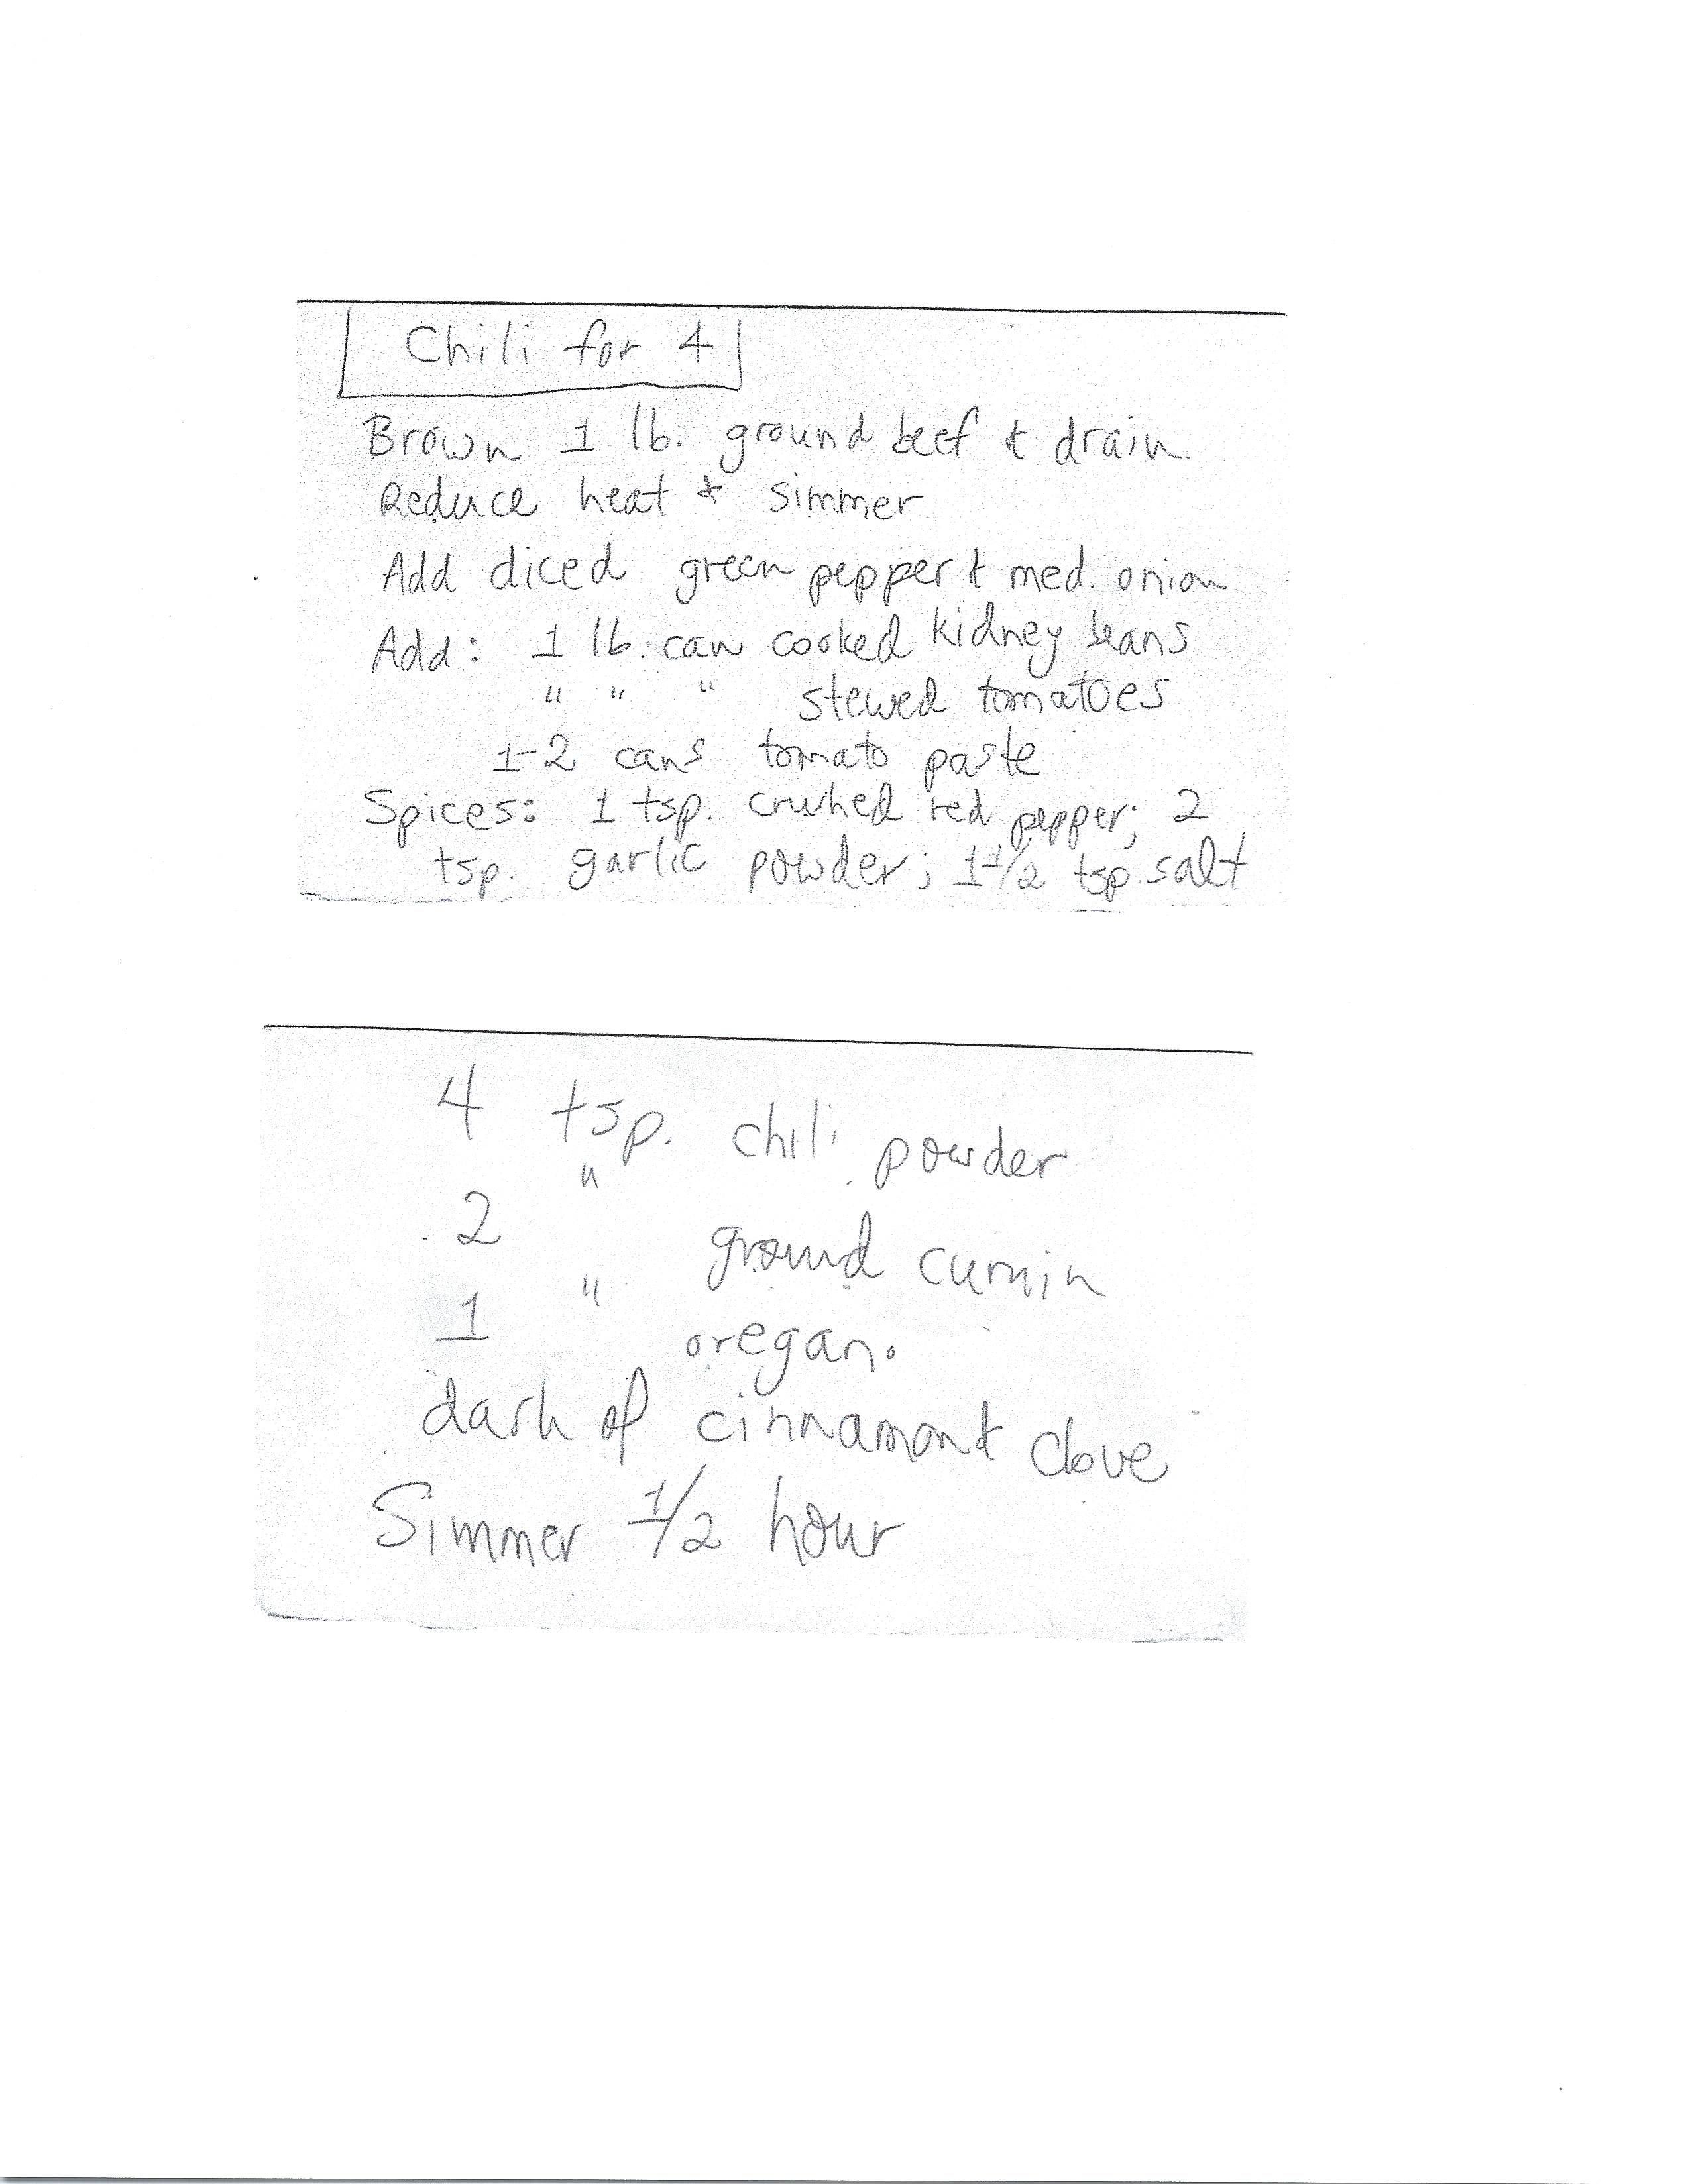 Chili for 4
Brown 1 lb. ground beef & drain.
Reduce heat & simmer
Add diced green pepper & med. onion
Add: 1 lb. can cooked kidney beans
" " " stewed tomatoes
1-2 cans tomato paste
Spices: 1 tsp. crushed red pepper; 2
tsp. garlic powder; 1 1/2 tsp. salt
4 tsp. chili powder
2 " ground cumin
1 " oregano
dash of cinnamon & clove
Simmer 1/2 hour